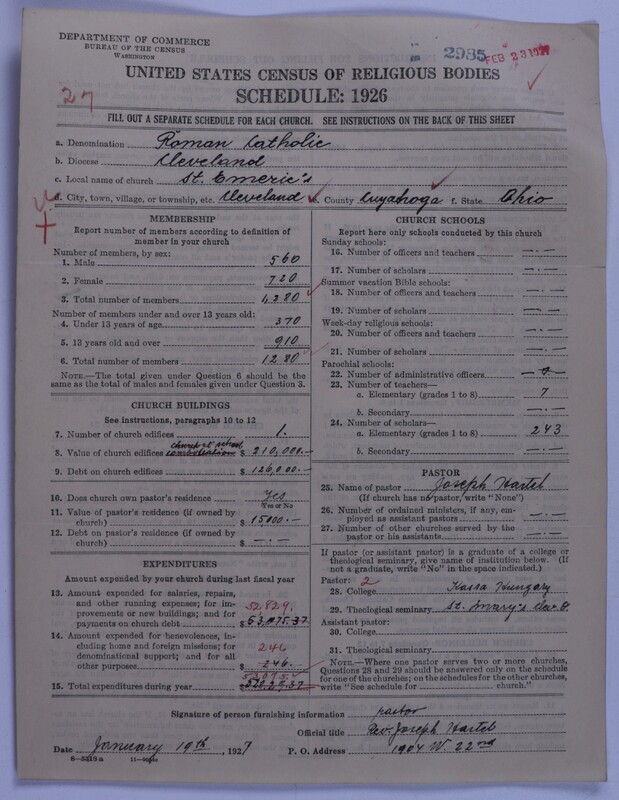 DEPARTMENT OF COMMERCE
BUREAU OF THE CENSUS
WASHINGTON
2985
FEB 23 1927
UNITED STATES CENSUS OF RELIGIOUS BODIES
SCHEDULE: 1926
27
FILL OUT A SEPARATE SCHEDULE FOR EACH CHURCH. SEE INSTRUCTIONS ON THE BACK OF THIS SHEET
a. Denomination Roman Catholic
b. Diocese Cleveland
c. Local name of church St. Emeric's
d. City, town, village, or township, etc. Cleveland e. County Cuyahoga f. State Ohio
MEMBERSHIP
Report number of members according to definition of
member in your church
Number of members, by sex:
1. Male 560
2. Female 720
3. Total number of members 1,280
Number of members under and over 13 years old:
4. Under 13 years of age 370
5. 13 years old and over 910
6. Total number of members 1280
NOTE.—The total given under Question 6 should be the
same as the total of males and females given under Question 3.
CHURCH BUILDINGS
See instructions, paragraphs 10 to 12
7. Number of church edifices 1.
church & school
combination
8. Value of church edifices $ 210,000.—
9. Debt on church edifices $ 126,000.—
10. Does church own pastor's residence Yes
Yes or No
11. Value of pastor's residence (if owned by
church) $ 15000.—
12. Debt on pastor's residence (if owned by
church) $ —.—
EXPENDITURES
Amount expended by your church during last fiscal year
13. Amount expended for salaries, repairs,
and other running expenses; for im-
provements or new buildings; and for 52,829.
payments on church debt $ 53,075.37
14. Amount expended for benevolences, in-
cluding home and foreign missions; for 246
denominational support; and for all
other purposes $ 246.
15. Total expenditures during year $
CHURCH SCHOOLS
Report here only schools conducted by this church
Sunday schools:
16. Number of officers and teachers —.—
17. Number of scholars —.—
Summer vacation Bible schools:
18. Number of officers and teachers —.—
19. Number of scholars —.—
Week-day religious schools:
20. Number of officers and teachers —.—
21. Number of scholars —.—
Parochial schools:
22. Number of administrative officers
23. Number of teachers—
a. Elementary (grades 1 to 8) 7
b. Secondary —.—
24. Number of scholars—
a. Elementary (grades 1 to 8) 243
b. Secondary —.—
PASTOR
25. Name of pastor Joseph Hartel
(If church has no pastor, write "None")
26. Number of ordained ministers, if any, em-
ployed as assistant pastors —.—
27. Number of other churches served by the
pastor or his assistants —.—
If pastor (or assistant pastor) is a graduate of a college or
theological seminary, give name of institution below. (If
not a graduate, write "No" in the space indicated.)
Pastor: 2
28. College Kassa Hungary
29. Theological seminary St. Mary's Clev. O.
Assistant pastor:
30. College
31. Theological seminary
NOTE.—Where one pastor serves two or more churches,
Questions 28 and 29 should be answered only on the schedule
for one of the churches; on the schedules for the other churches,
write "See schedule for church."
Signature of person furnishing information pastor
Official title Rev. Joseph Hartel
Date January 19th, 1927 P. O. Address 1904 W. 22nd